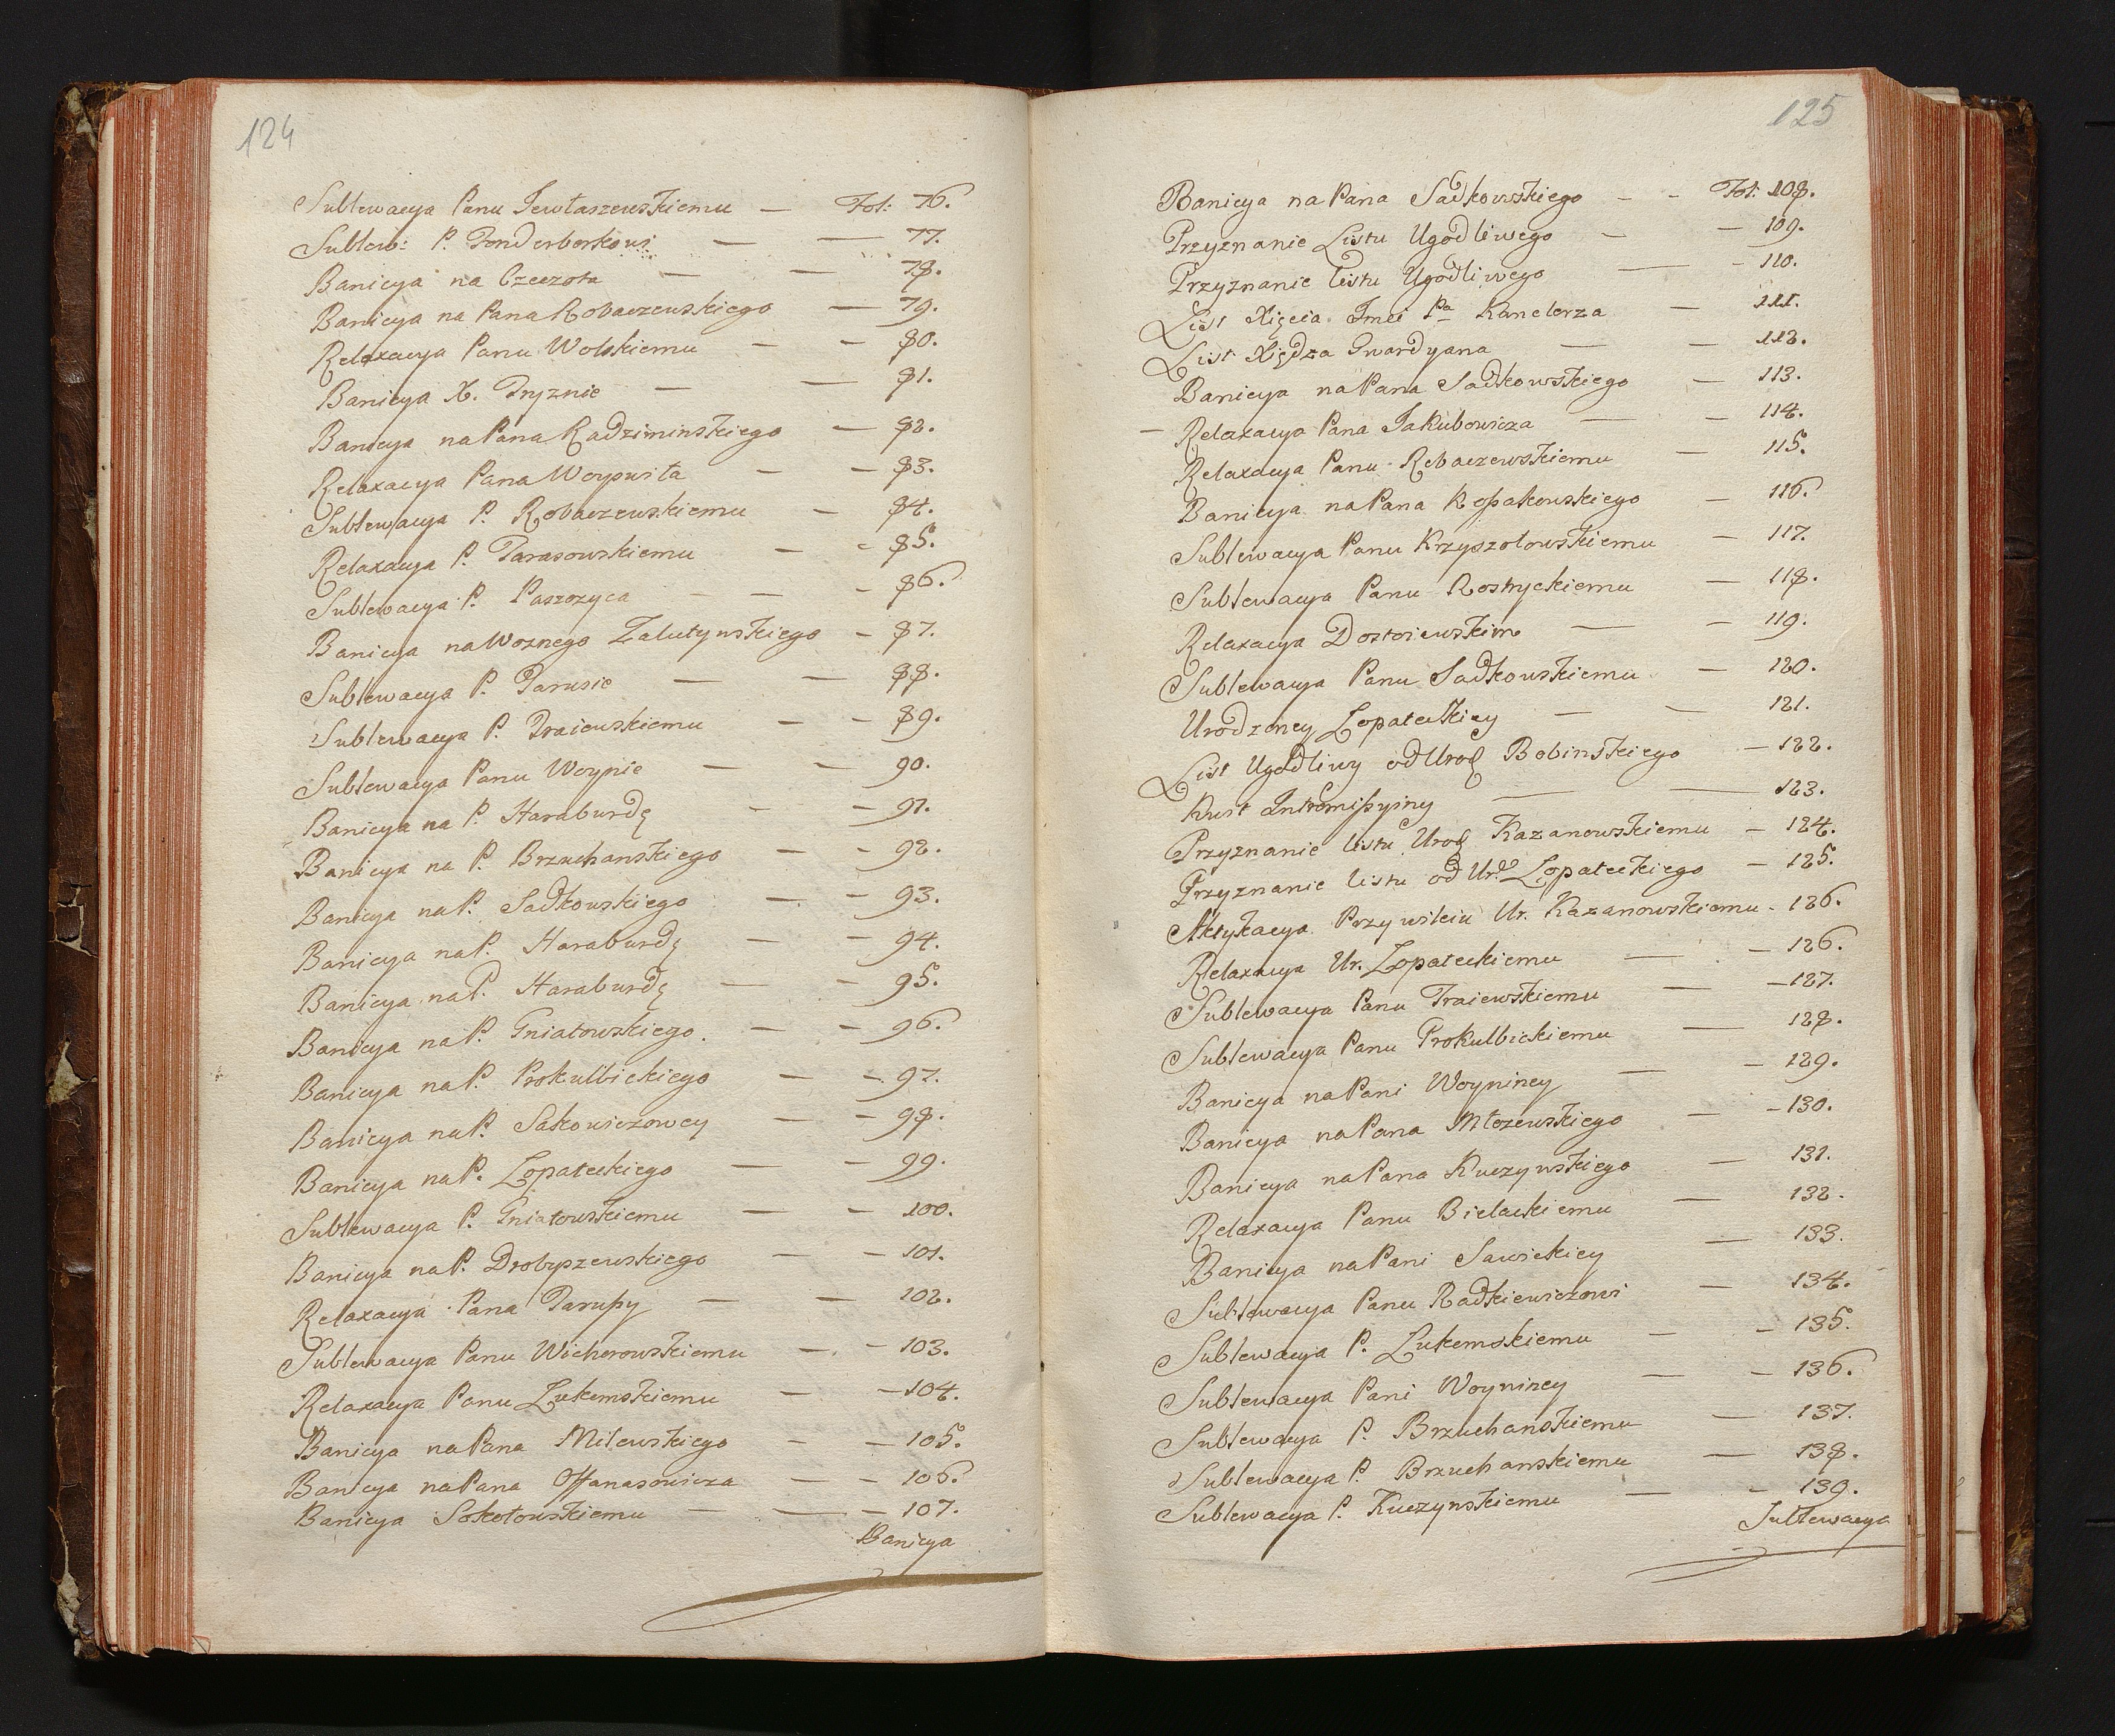 124
Sublewacya Panu Jewłaszewskiemu — Fol: 76.
Sublew: P. Fonderborkowi — — 77.
Banicya na Czeczota — — 78.
Banicya na Pana Robaczewskiego — 79.
Relaxacya Panu Wolskiemu — - 80.
Banicya X. Tryznie — — 81.
Banicya na Pana Radziminskiego — 82.
Relaxacya Pana Woyswiła — — 83.
Sublewacya P. Robaczewskiemu — 84.
Relaxacya P. Tarasowskiemu — - 85.
Sublewacya P. Paszozyca — — - 86.
Banicya na Woznego Zalutynskiego — 87.
Sublewacya P. Parusie — — 88.
Sublewacya P. Traiewskiemu — — 89.
Sublewacya Panu Woynie — — 90.
Banicya na P. Haraburdę — — 91.
Banicya na P. Brzuchanskiego — — 92.
Banicya na P. Sadkowskiego — — 93.
Banicya na P. Haraburdę — — 94.
Banicya na P. Haraburdę — — 95.
Banicya na P. Gniatowskiego. — — 96.
Banicya na P. Prokulbickiego — — 97.
Banicya na P. Sakowiczowey — — 98.
Banicya na P. Łopateckiego — — 99.
Sublewacya P. Gniatowskiemu — — 100.
Banicya na P. Drobyszewskiego — — 101.
Relaxacya Pana Parupy — — 102.
Sublewacya Panu Wichorowskiemu — - 103.
Relaxacya Panu Łukomskiemu — — 104.
Banicya na Pana Milewskiego — — 105.
Banicya na Pana Offanasowicza — — 106.
Banicya Sokołowskiemu — — — 107.
Banicya
125
Banicya na Pana Sadkowskiego - - Fol: 108.
Przyznanie Listu Ugodliwego — — 109.
Przyznanie Listu Ugodliwego — - 110.
List Xięcia Jmci Pa Kanclerza — 111.
List Xiędza Gwardyana — — 112.
Banicya na Pana Sadkowskiego — 113.
— Relaxacya Pana Jakubowicza — — 114.
Relaxacya Panu Robaczewskiemu — 115.
Banicya na Pana Kossakowskiego — 116.
Sublewacya Panu Krzyszołowskiemu — 117.
Sublewacya Panu Rostryckiemu — 118.
Relaxacya Dostoiewskim — — 119.
Sublewacya Panu Sadkowskiemu — 120.
Urodzoney Łopateckiey — — 121.
List Ugodliwy od Urod Bobinskiego — 122.
Kwit Intromissyiny — — 123.
Przyznanie listu Urod Kazanowskiemu — 124.
Przyznanie listu od Ur. Łopateckiego — 125.
Aktykacya Przywileiu Ur. Kazanowskiemu - 126.
Relaxacya Ur. Łopateckiemu — — 126.
Sublewacya Panu Traiewskiemu — — 127.
Sublewacya Panu Prokulbickiemu — 128.
Banicya na Pani Woyniney — — 129.
Banicya na Pana Młozewskiego — — 130.
Banicya na Pana Kuczynskiego — 131.
Relaxacya Panu Bielackiemu — 132.
Banicya na Pani Sawickiey — 133.
Sublewacya Panu Radkiewiczowi — 134.
Sublewacya P. Łukomskiemu — — 135.
Sublewacya Pani Woyniney — — 136.
Sublewacya P. Brzuchanskiemu — 137.
Sublewacya P. Brzuchanskiemu — 138.
Sublewacya P. Kuczynskiemu — - 139.
Sublewacya